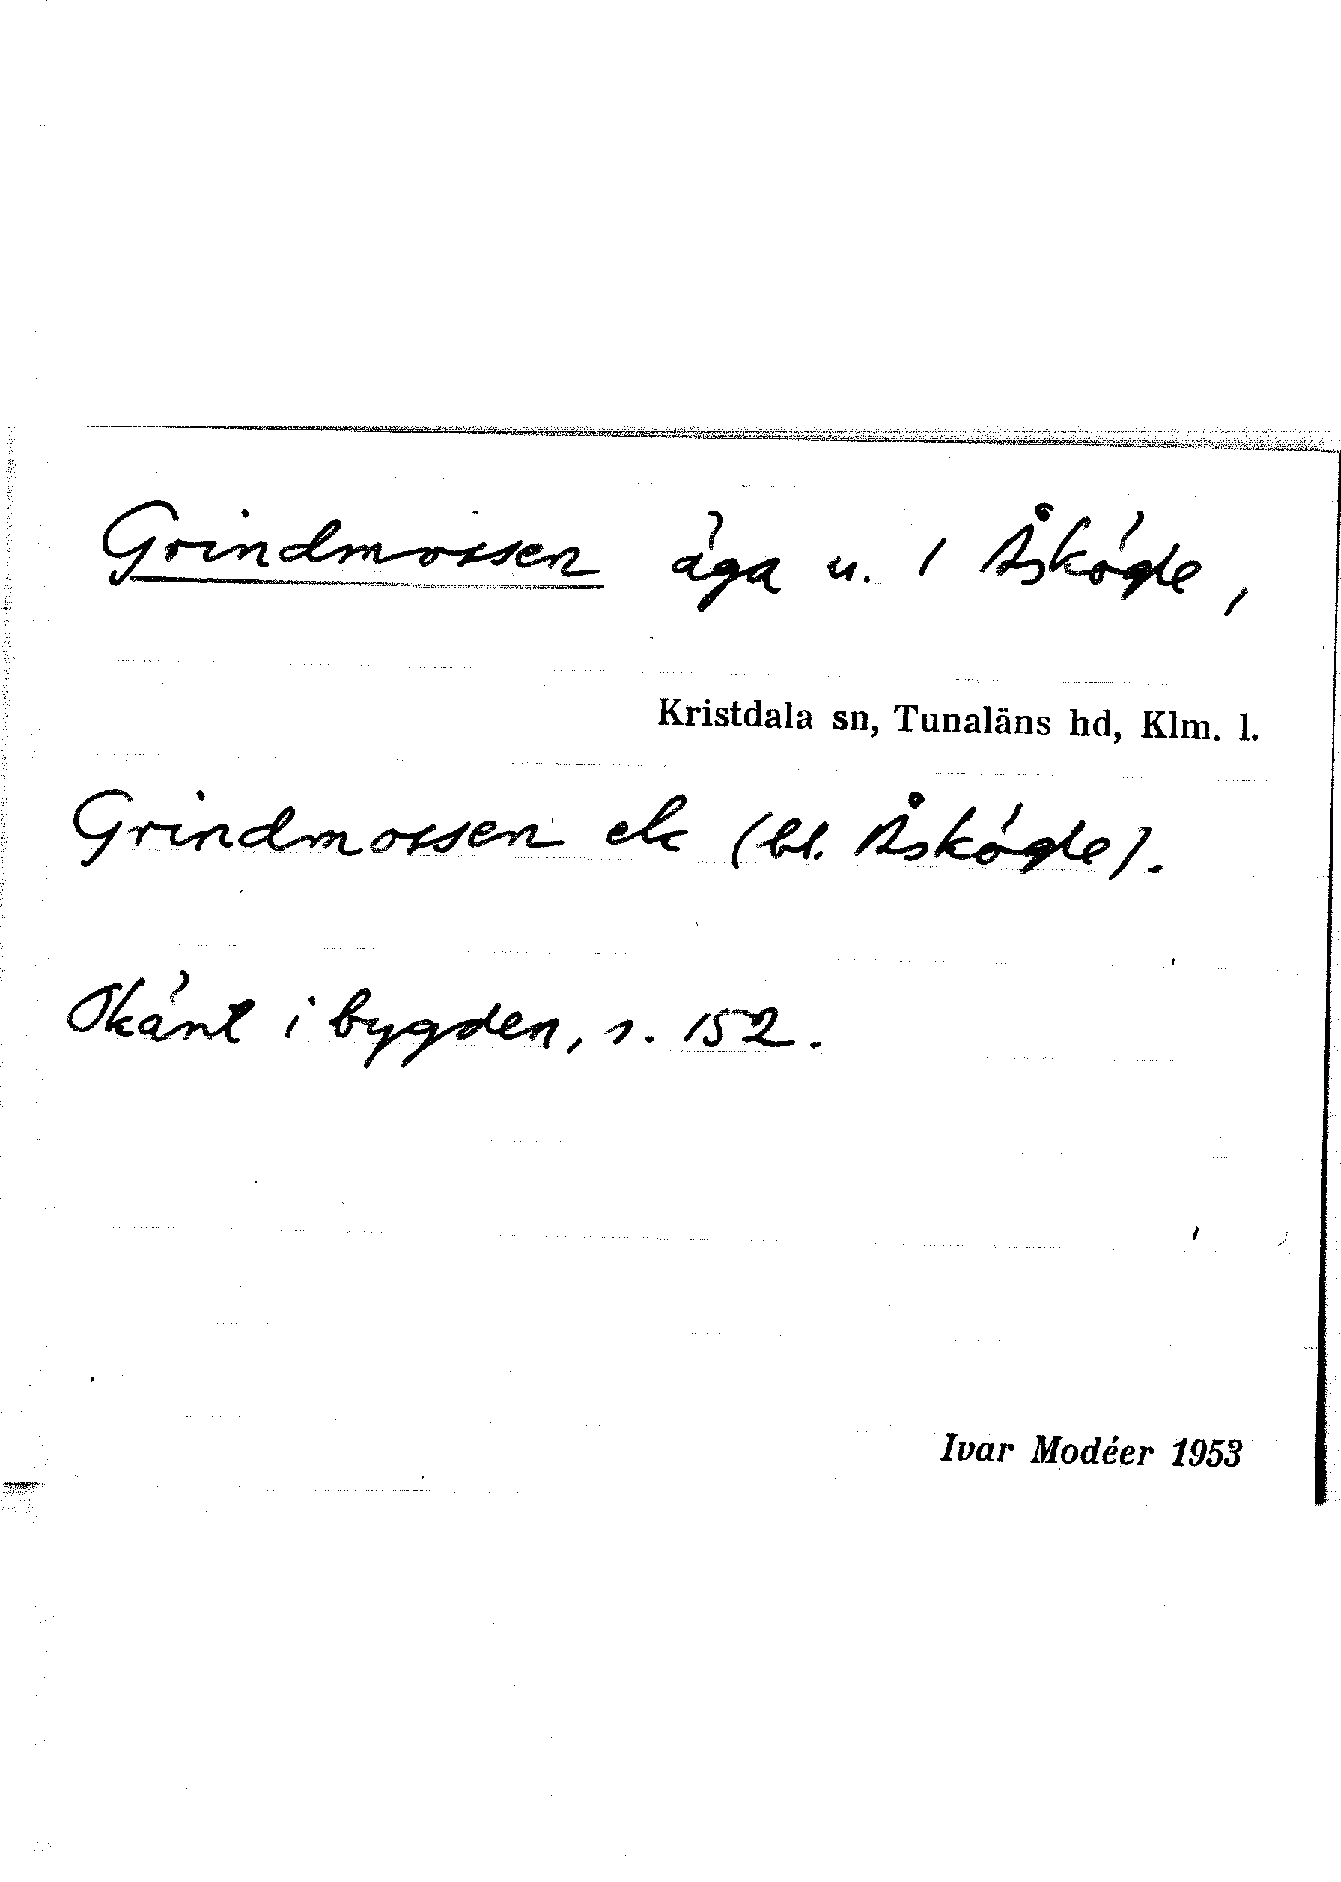 Grindmossen äga u. 1 Åskögle,
Kristdala sn, Tunaläns hd, Klm. l.
Grindmossen ek (bl. Åskögle).
Okänt i bygden, s. 152.
Ivar Modéer 1953